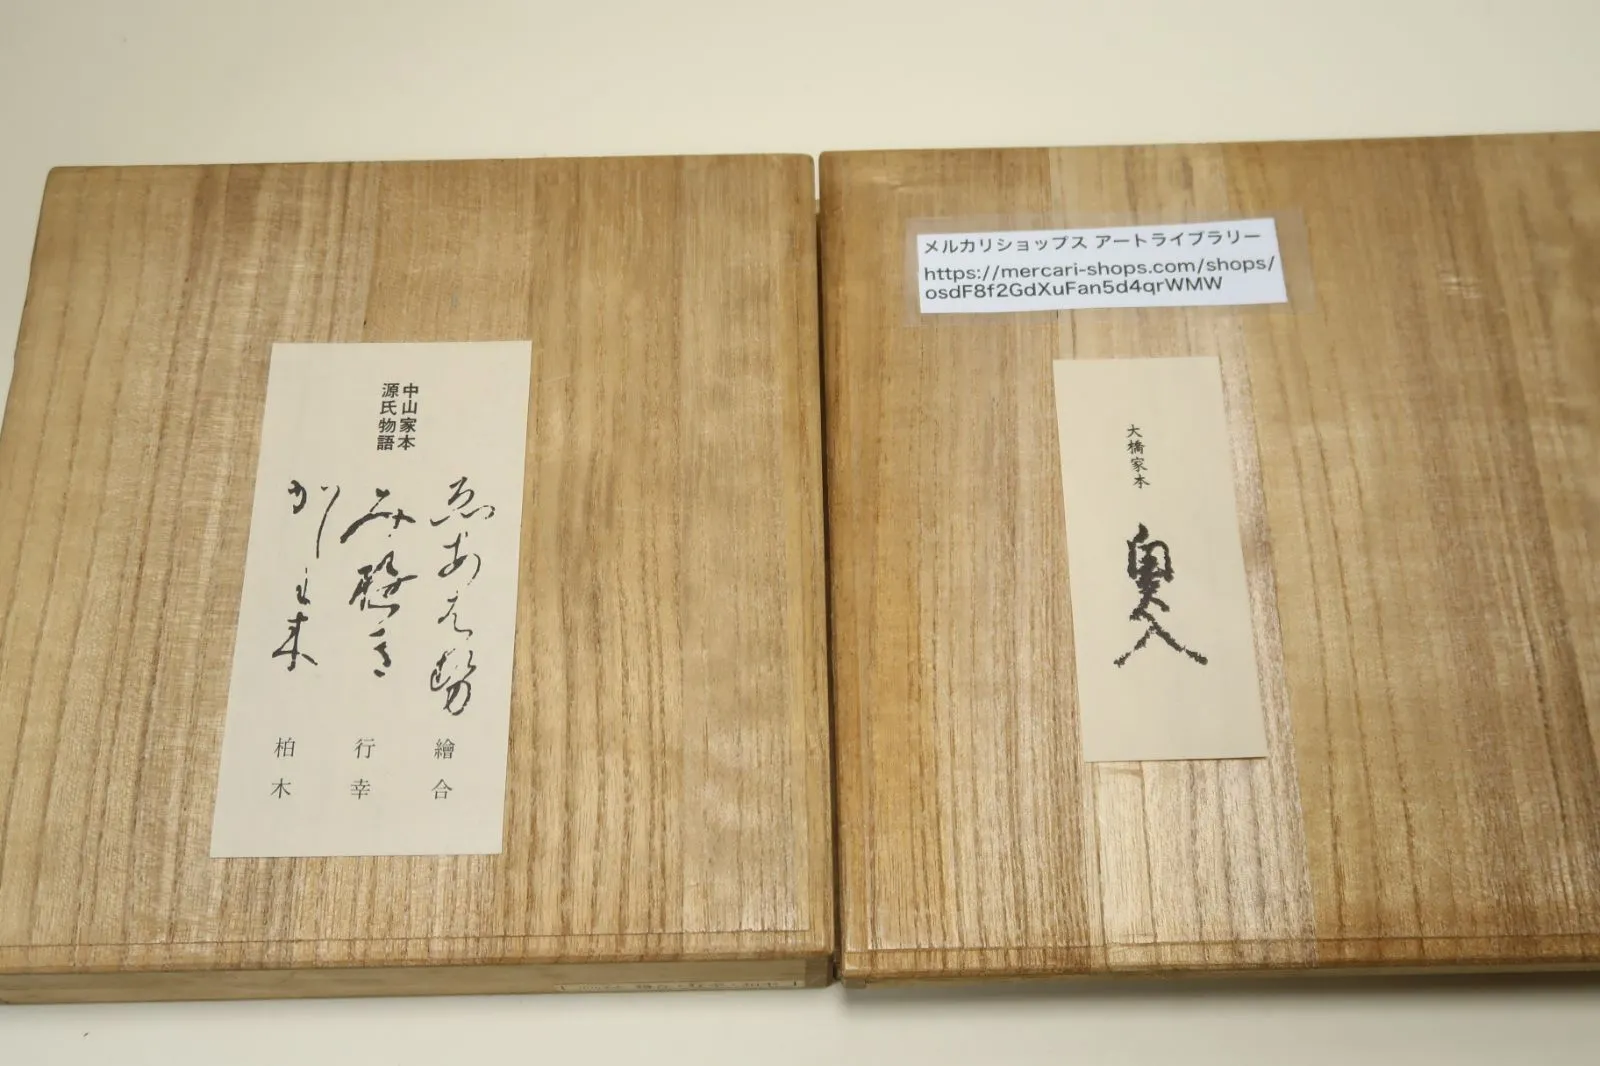 中山家本
源氏物語
ゑあはせ
み雪
かしは木
繪合
行幸
柏木
メルカリショップス アートライブラリー
https://mercari-shops.com/shops/
osdF8f2GdXuFan5d4qrWMW
大橋家本
奥入